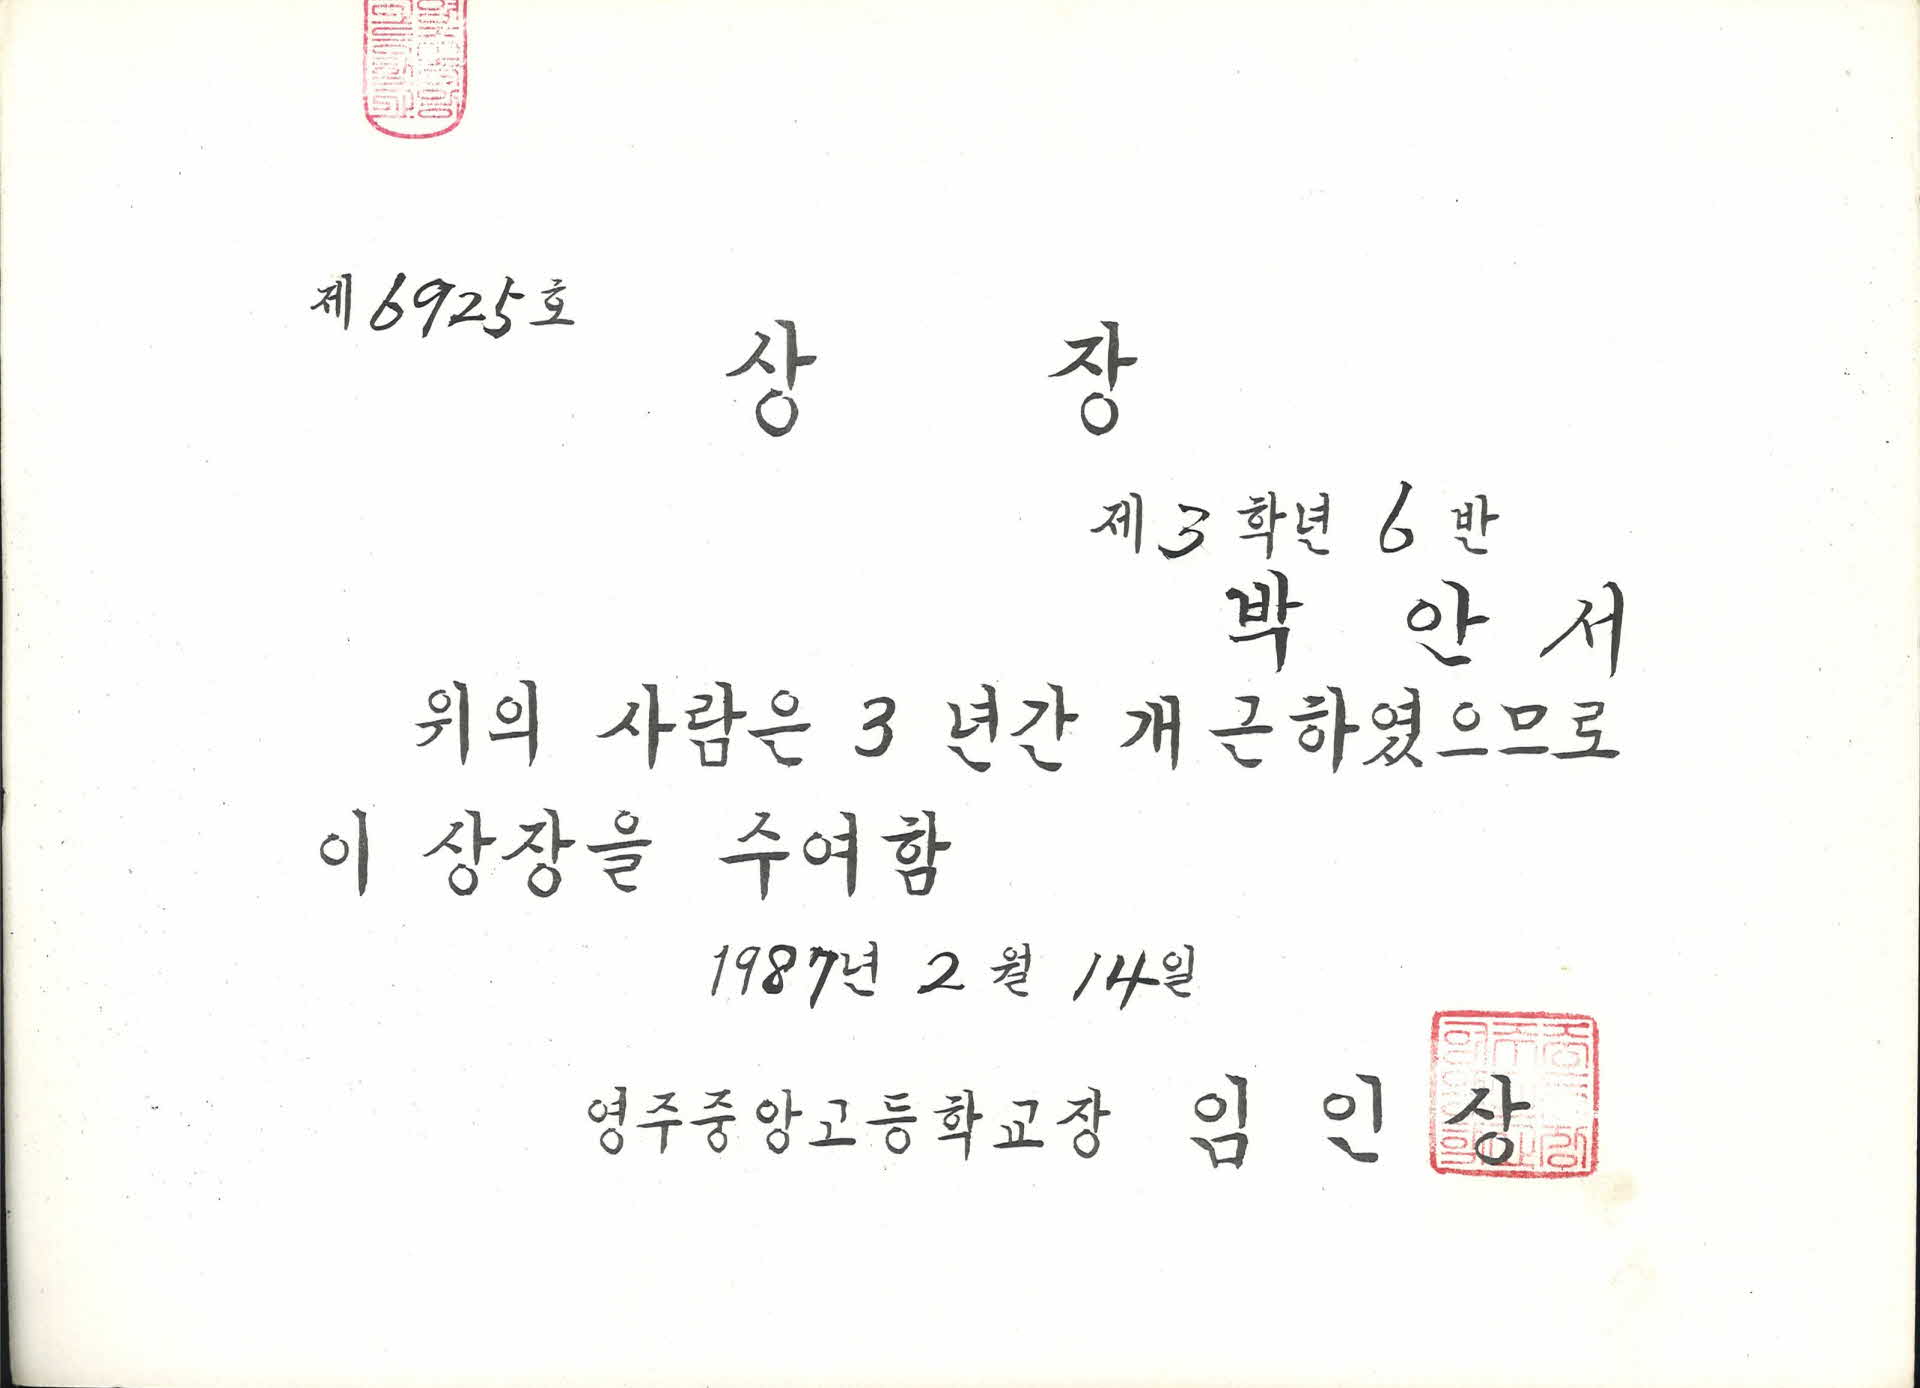 제6925호
상 장
제3학년 6반
박 안 서
위의 사람은 3년간 개근하였으므로
이 상장을 주여함
1987년 2월 14일
영주중앙고등학교장 임 인 상